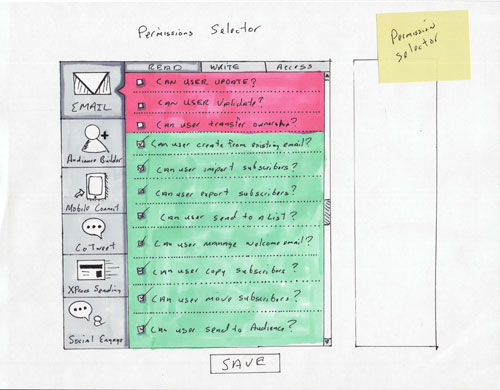 Permissions Selector
Permission
Selector
READ
WRITE
ACCESS
EMAIL
Audience Builder
Mobile Connect
CoTweet
XPress Sending
Social Engage
CAN USER UPDATE?
CAN USER Validate?
Can user transfer ownership?
Can user create from existing email?
Can user import subscribers?
Can user export subscribers?
Can user send to a List?
Can user manage welcome email?
Can user copy subscribers?
Can user move subscribers?
Can user send to Audience?
SAVE